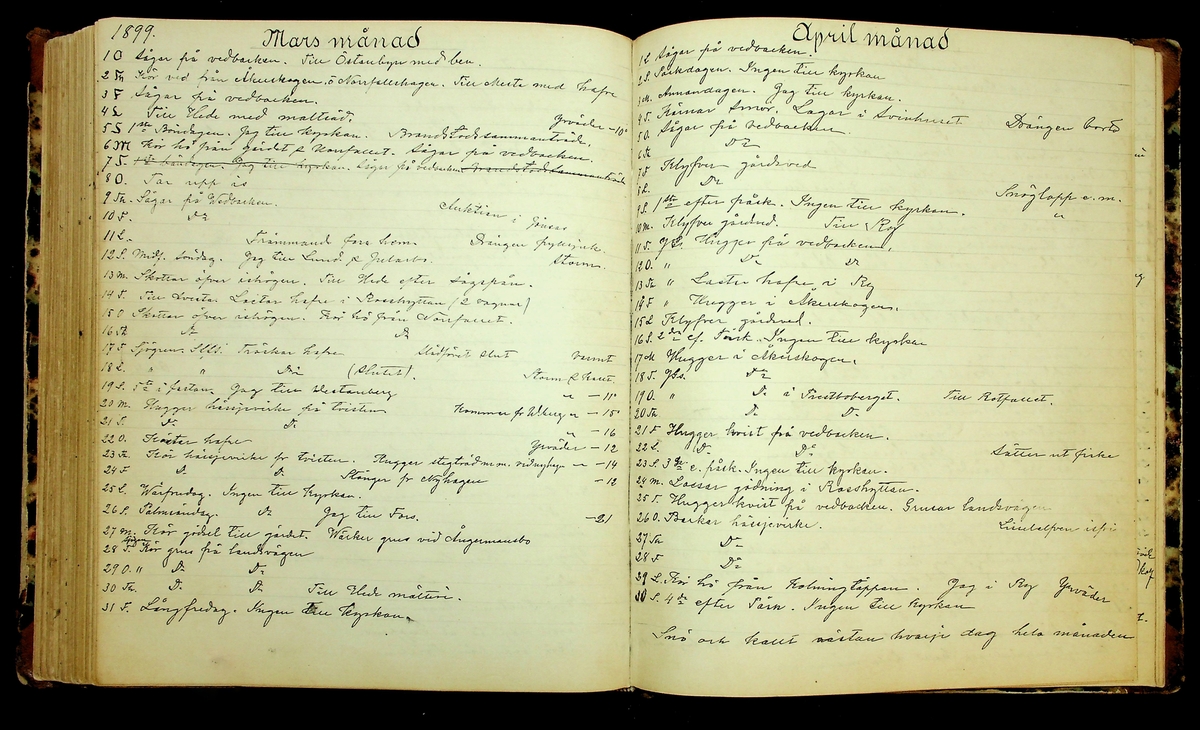 1899.
Mars månad
1 O Sågar på vedbacken. Till Östanbyn med ben.
2 Th. Kör ved från Åkerskogen o Norrfallshagen. Till Mesta med hafre
3 F Sågar på vedbacken.
4 L Till Hede med maltsäd. Yrväder -10°
5 S 1sta Böndagen. Jag till kyrkan. Brandstodssammanträde.
6 M Kör hö från gärdet & Norfallet. Sågar på vedbacken.
7 T. Sågar på vedbacken
8 O. Tar upp is
9 Th. Sågar på Vedbacken. Auktion i
10 F. Do
11 L. Främmand fara hem. Drängen
12 S. Midf. söndag. Jag till Lund & Storm.
13 M. Skottar öfver ishögen. Till Hede efter sågspån.
14 T. Till Avesta. Lastar hafre i Rosshyttan (2 vagnar)
15 O Skottar öfver ishögen. Kör hö från Norfallet.
16 Th Do Do
17 F Tröskar hafre Slädföret slut Varmt
18 L. " " Do (Slutet). Storm & kallt.
19 S. 5te i fastan. Jag till Westanberg " - 11°
20 M. Hugger hässjevirke på tvisten Kommer fr W.berg " - 15°
21 T. Do Do " - 16
22 O. hafre Yrväder - 12
23 Th. Kör hässjevirke fr tvisten. Hugger stegträd m.m. " - 14
24 F Do Do Stänger fr Nyhagen - 12
25 L. Warfrudag. Ingen till Kyrkan.
26 S. Palmsöndag. Do Jag till Fors. -21
27 M. Kör gödsel till gärdet. Wäcker grus vid Ångermansbo
28 T Kör grus på landsvägen
29 O. " Do Do
30 Th. Do Do Till Hede mälteri.
31 F. Långfredag. Ingen till Kyrkan.
April månad
1 L Sågar på vedbacken.
2 S. Påskdagen. Ingen till kyrkan
3 M. Annandagen. Jag till kyrkan.
4 T. Kärnar smör. Lagar i Svinhuset Drängen borta
5 O. Sågar på vedbacken.
6 Th Do
7 F Klyfver gårdsved
8 L. Do Snöglopp e.m.
9 S. 1sta efter påsk. Ingen till kyrkan. "
10 M. Klyfver gårdsved. Till Ry
11 T. Hugger på vedbacken.
12 O. " Do Do
13 Th " Lastar hafre i Ry
14 F " Hugger i Åkerskogen.
15 L Klyfver gårdsved.
16 S. 2dra ef. Påsk. Ingen till kyrkan
17 M Hugger i Åkerskogen.
18 T. Do
19 O. " Do i Prestboberget. Till Rotfallet.
20 Th Do Do
21 F Hugger kvist på vedbacken.
22 L. " Do Do Sätter ut fiske
23 S. 3dje e. påsk. Ingen till kyrkan.
24 M. Lossar gödning i Rosshyttan.
25 T. Hugger kvist på vedbacken. Grusar landsvägen
26 O. Barkar hässjevirke. isfri
27 Th Do
28 F Do
29 L. Kör hö från Holmingtäppan. Jag i Ry Yrväder
30 S. 4de efter Påsk. Ingen till Kyrkan
Snö och kallt nästan hvarje dag hela månaden